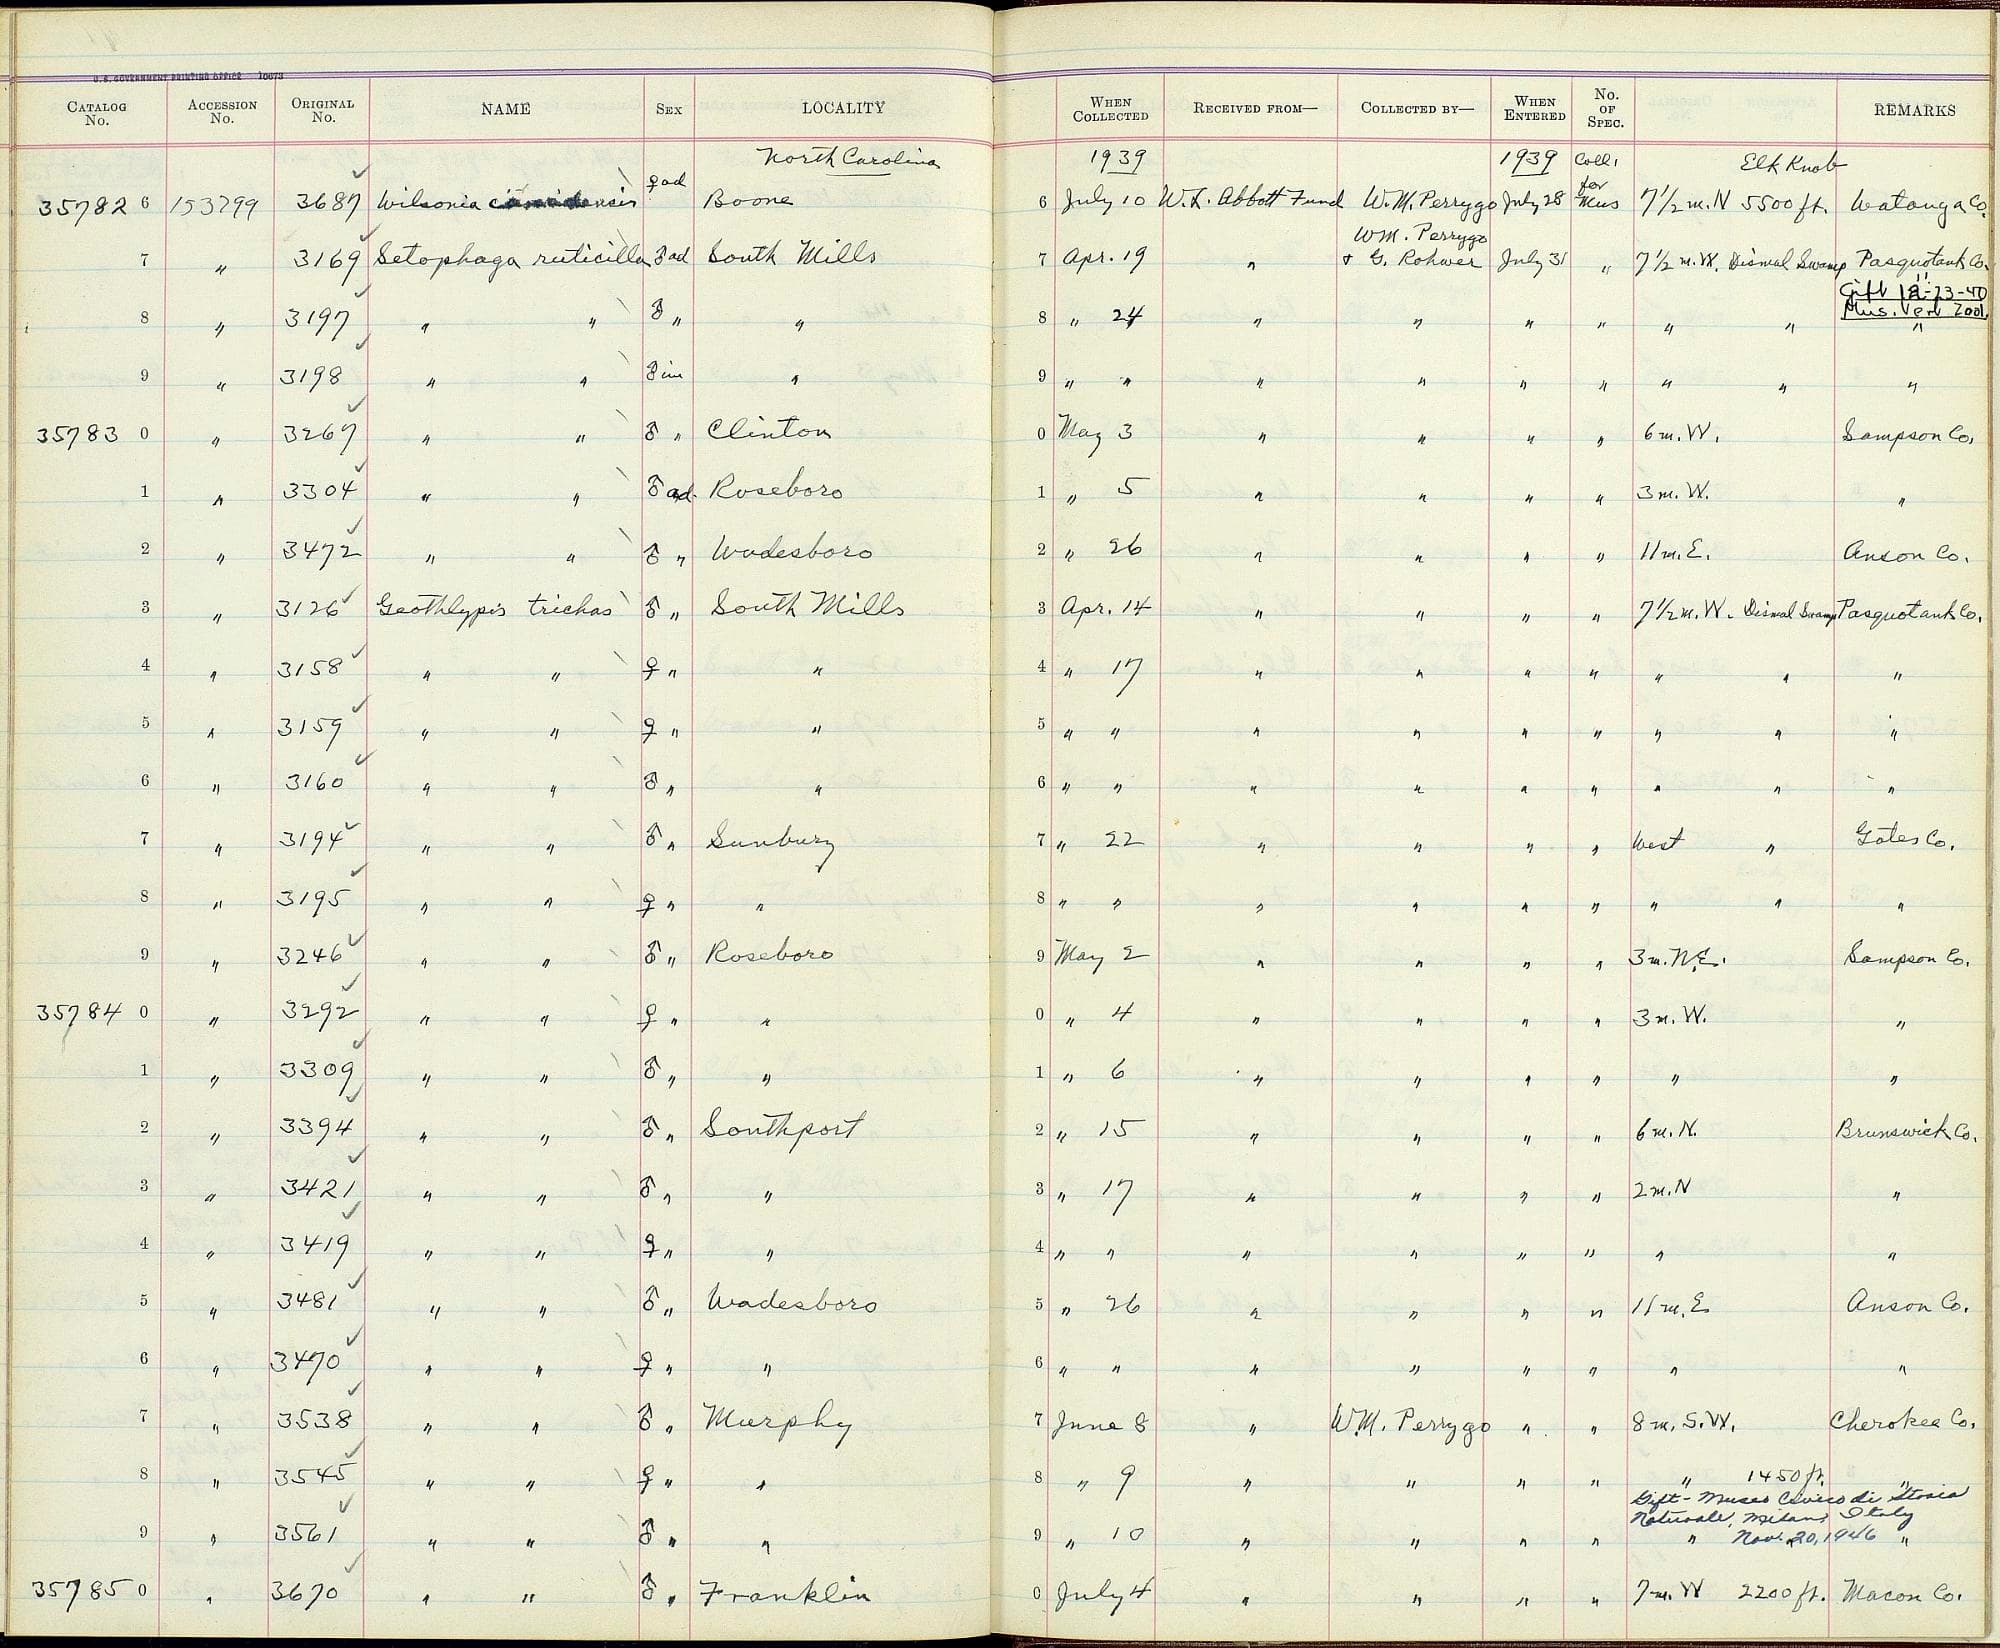 U.S. GOVERNMENT PRINTING OFFICE 10673
CATALOG No. ACCESSION No. ORIGINAL No. NAME SEX LOCALITY WHEN COLLECTED RECEIVED FROM— COLLECTED BY— WHEN ENTERED No. OF SPEC. REMARKS
North Carolina 1939 1939 Coll. Elk Knob
35782 6 153299 3687 Wilsonia ♀ ad Boone 6 July 10 W. L. Abbott Fund W. M. Perrygo July 28 for Mus 7 1/2 m. N 5500 ft. Watauga Co.
W M. Perrygo
7 " 3169 Setophaga ruticilla ♂ ad South Mills 7 Apr. 19 " & G. Rohwer July 31 " 7 1/2 m. W. Dismal Swamp Pasquotank Co.
Gift 12-23-40
Mus. Vert Zool.
8 " 3197 " " ♂ " " 8 " 24 " " " " " " "
9 " 3198 " " ♂ im " 9 " " " " " " " " "
35783 0 " 3267 " " ♂ " Clinton 0 May 3 " " " " 6 m. W. Sampson Co.
1 " 3304 " " ♂ ad. Roseboro 1 " 5 " " " " 3 m. W. "
2 " 3472 " " ♂ " Wadesboro 2 " 26 " " " " 11 m. E. Anson Co.
3 " 3126 Geothlypis trichas ♂ " South Mills 3 Apr. 14 " " " " 7 1/2 m. W. Dismal Swamp Pasquotank Co.
4 " 3158 " " ♀ " " 4 " 17 " " " " " " "
5 " 3159 " " ♀ " " 5 " " " " " " " " "
6 " 3160 " " ♂ " " 6 " " " " " " " " "
7 " 3194 " " ♂ " Sunbury 7 " 22 " " " " West " Gates Co.
8 " 3195 " " ♀ " " 8 " " " " " " " " "
9 " 3246 " " ♂ " Roseboro 9 May 2 " " " " 3 m. N.E. Sampson Co.
35784 0 " 3292 " " ♀ " " 0 " 4 " " " " 3 m. W. "
1 " 3309 " " ♂ " " 1 " 6 " " " " " "
2 " 3394 " " ♂ " Southport 2 " 15 " " " " 6 m. N. Brunswick Co.
3 " 3421 " " ♂ " " 3 " 17 " " " " 2 m. N "
4 " 3419 " " ♀ " " 4 " " " " " " " "
5 " 3481 " " ♂ " Wadesboro 5 " 26 " " " " 11 m. E. Anson Co.
6 " 3470 " " ♀ " " 6 " " " " " " " "
7 " 3538 " " ♂ " Murphy 7 June 8 " W.M. Perrygo " " 8 m. S.W. Cherokee Co.
8 " 3545 " " ♀ " " 8 " 9 " " " " " 1450 ft. "
Gift - Museo Civico di Storia
Naturale, Milano, Italy
9 " 3561 " " ♂ " " 9 " 10 " " " " " Nov. 20, 1946 "
35785 0 " 3670 " " ♂ " Franklin 0 July 4 " " " " 7 m. W 2200 ft. Macon Co.